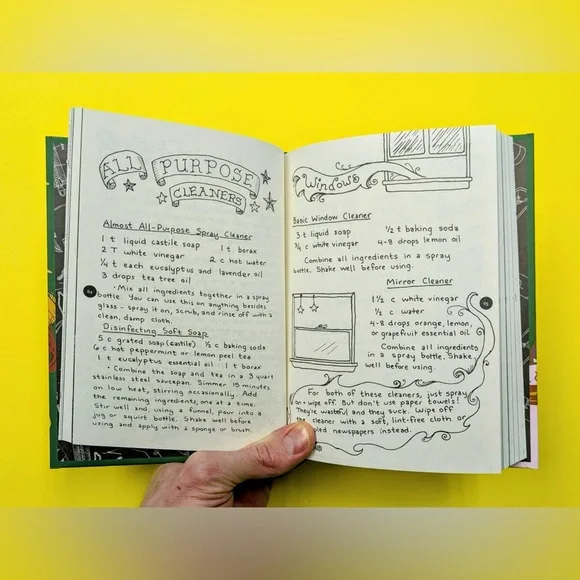 ALL PURPOSE
CLEANERS
Almost All-Purpose Spray Cleaner
1 t liquid castile soap 1 t borax
2 T white vinegar 2 c hot water
¼ t each eucalyptus and lavender oil
3 drops tea tree oil
• Mix all ingredients together in a spray
bottle. You can use this on anything besides
glass - spray it on, scrub, and rinse off with a
clean, damp cloth.
Disinfecting Soft Soap
5 c grated soap (castile) ⅓ c baking soda
6 c hot peppermint or lemon peel tea
1 t eucalyptus essential oil 1 t borax
• Combine the soap and tea in a 3 quart
stainless steel saucepan. Simmer 15 minutes
on low heat, stirring occasionally. Add
the remaining ingredients, one at a time.
Stir well and, using a funnel, pour into a
jug or squirt bottle. Shake well before
using and apply with a sponge or brush.
Windows
Basic Window Cleaner
3 t liquid soap ½ t baking soda
¾ c white vinegar 4-8 drops lemon oil
Combine all ingredients in a spray
bottle. Shake well before using.
Mirror Cleaner
1½ c white vinegar
½ c water
4-8 drops orange, lemon,
or grapefruit essential oil
Combine all ingredients
in a spray bottle. Shake
well before using.
For both of these cleaners, just spray
on + wipe off. But don't use paper towels!
They're wasteful and they suck. Wipe off
the cleaner with a soft, lint-free cloth or
newspapers instead.